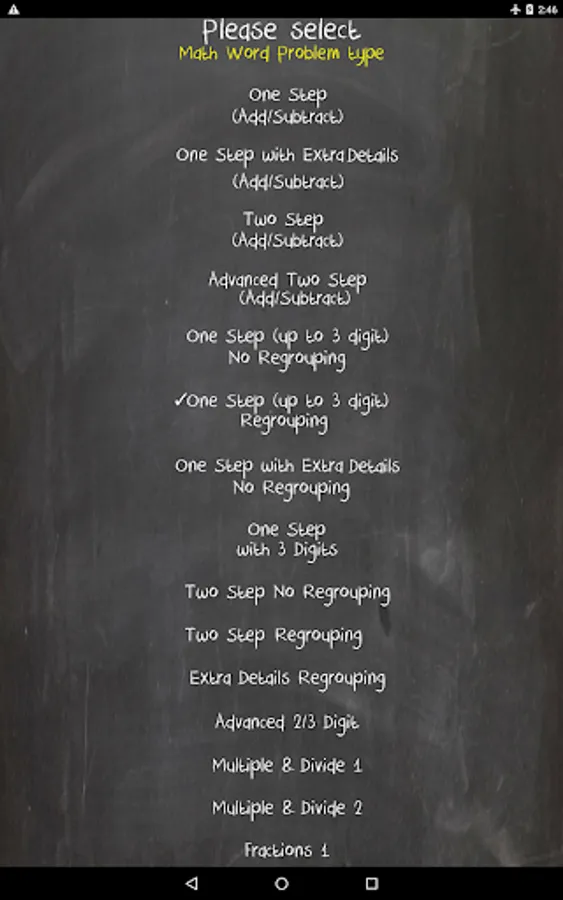 2:46
Please select
Math Word Problem type
One Step
(Add/Subtract)
One Step with Extra Details
(Add/Subtract)
Two Step
(Add/Subtract)
Advanced Two Step
(Add/Subtract)
One Step (up to 3 digit)
No Regrouping
✓One Step (up to 3 digit)
Regrouping
One Step with Extra Details
No Regrouping
One Step
with 3 Digits
Two Step No Regrouping
Two Step Regrouping
Extra Details Regrouping
Advanced 2/3 Digit
Multiple & Divide 1
Multiple & Divide 2
Fractions 1